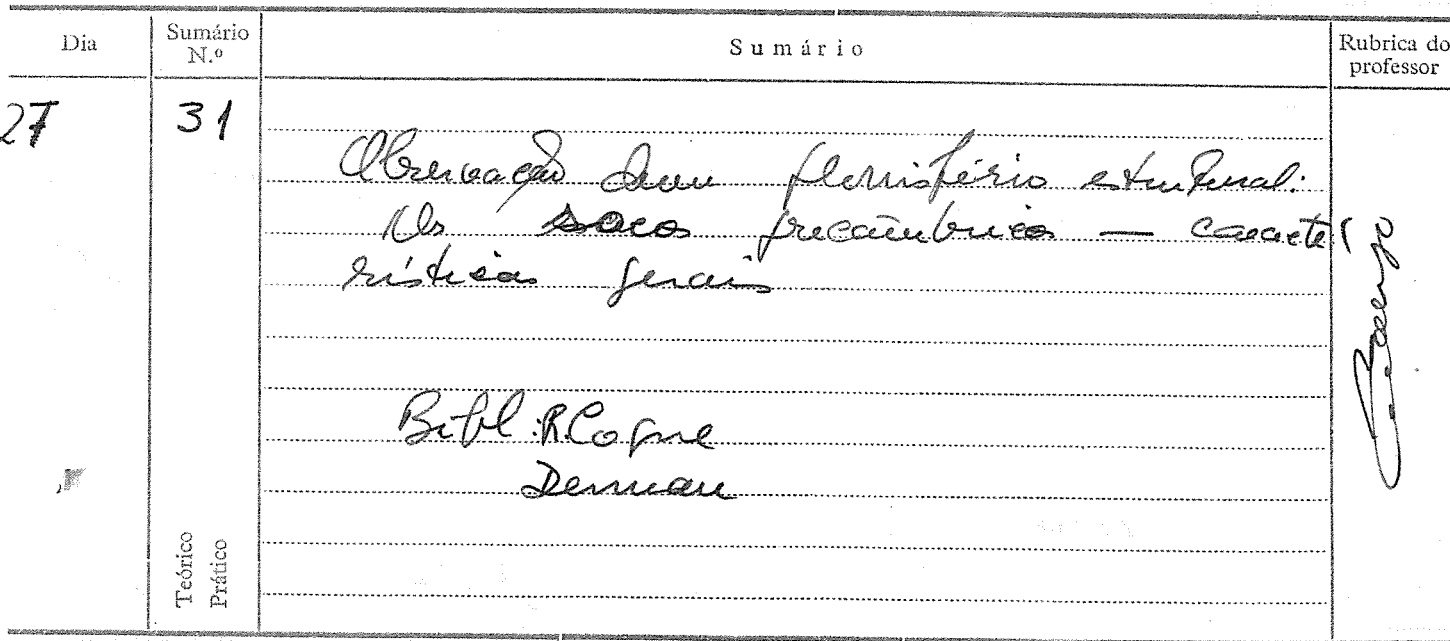 Dia
Sumário N.º
Sumário
Rubrica do professor
27
31
Observação dum planisfério estrutural.
Os socos precâmbricos — caracte
rísticas gerais
Bibl: R. Coque
Derruau
Teórico
Prático